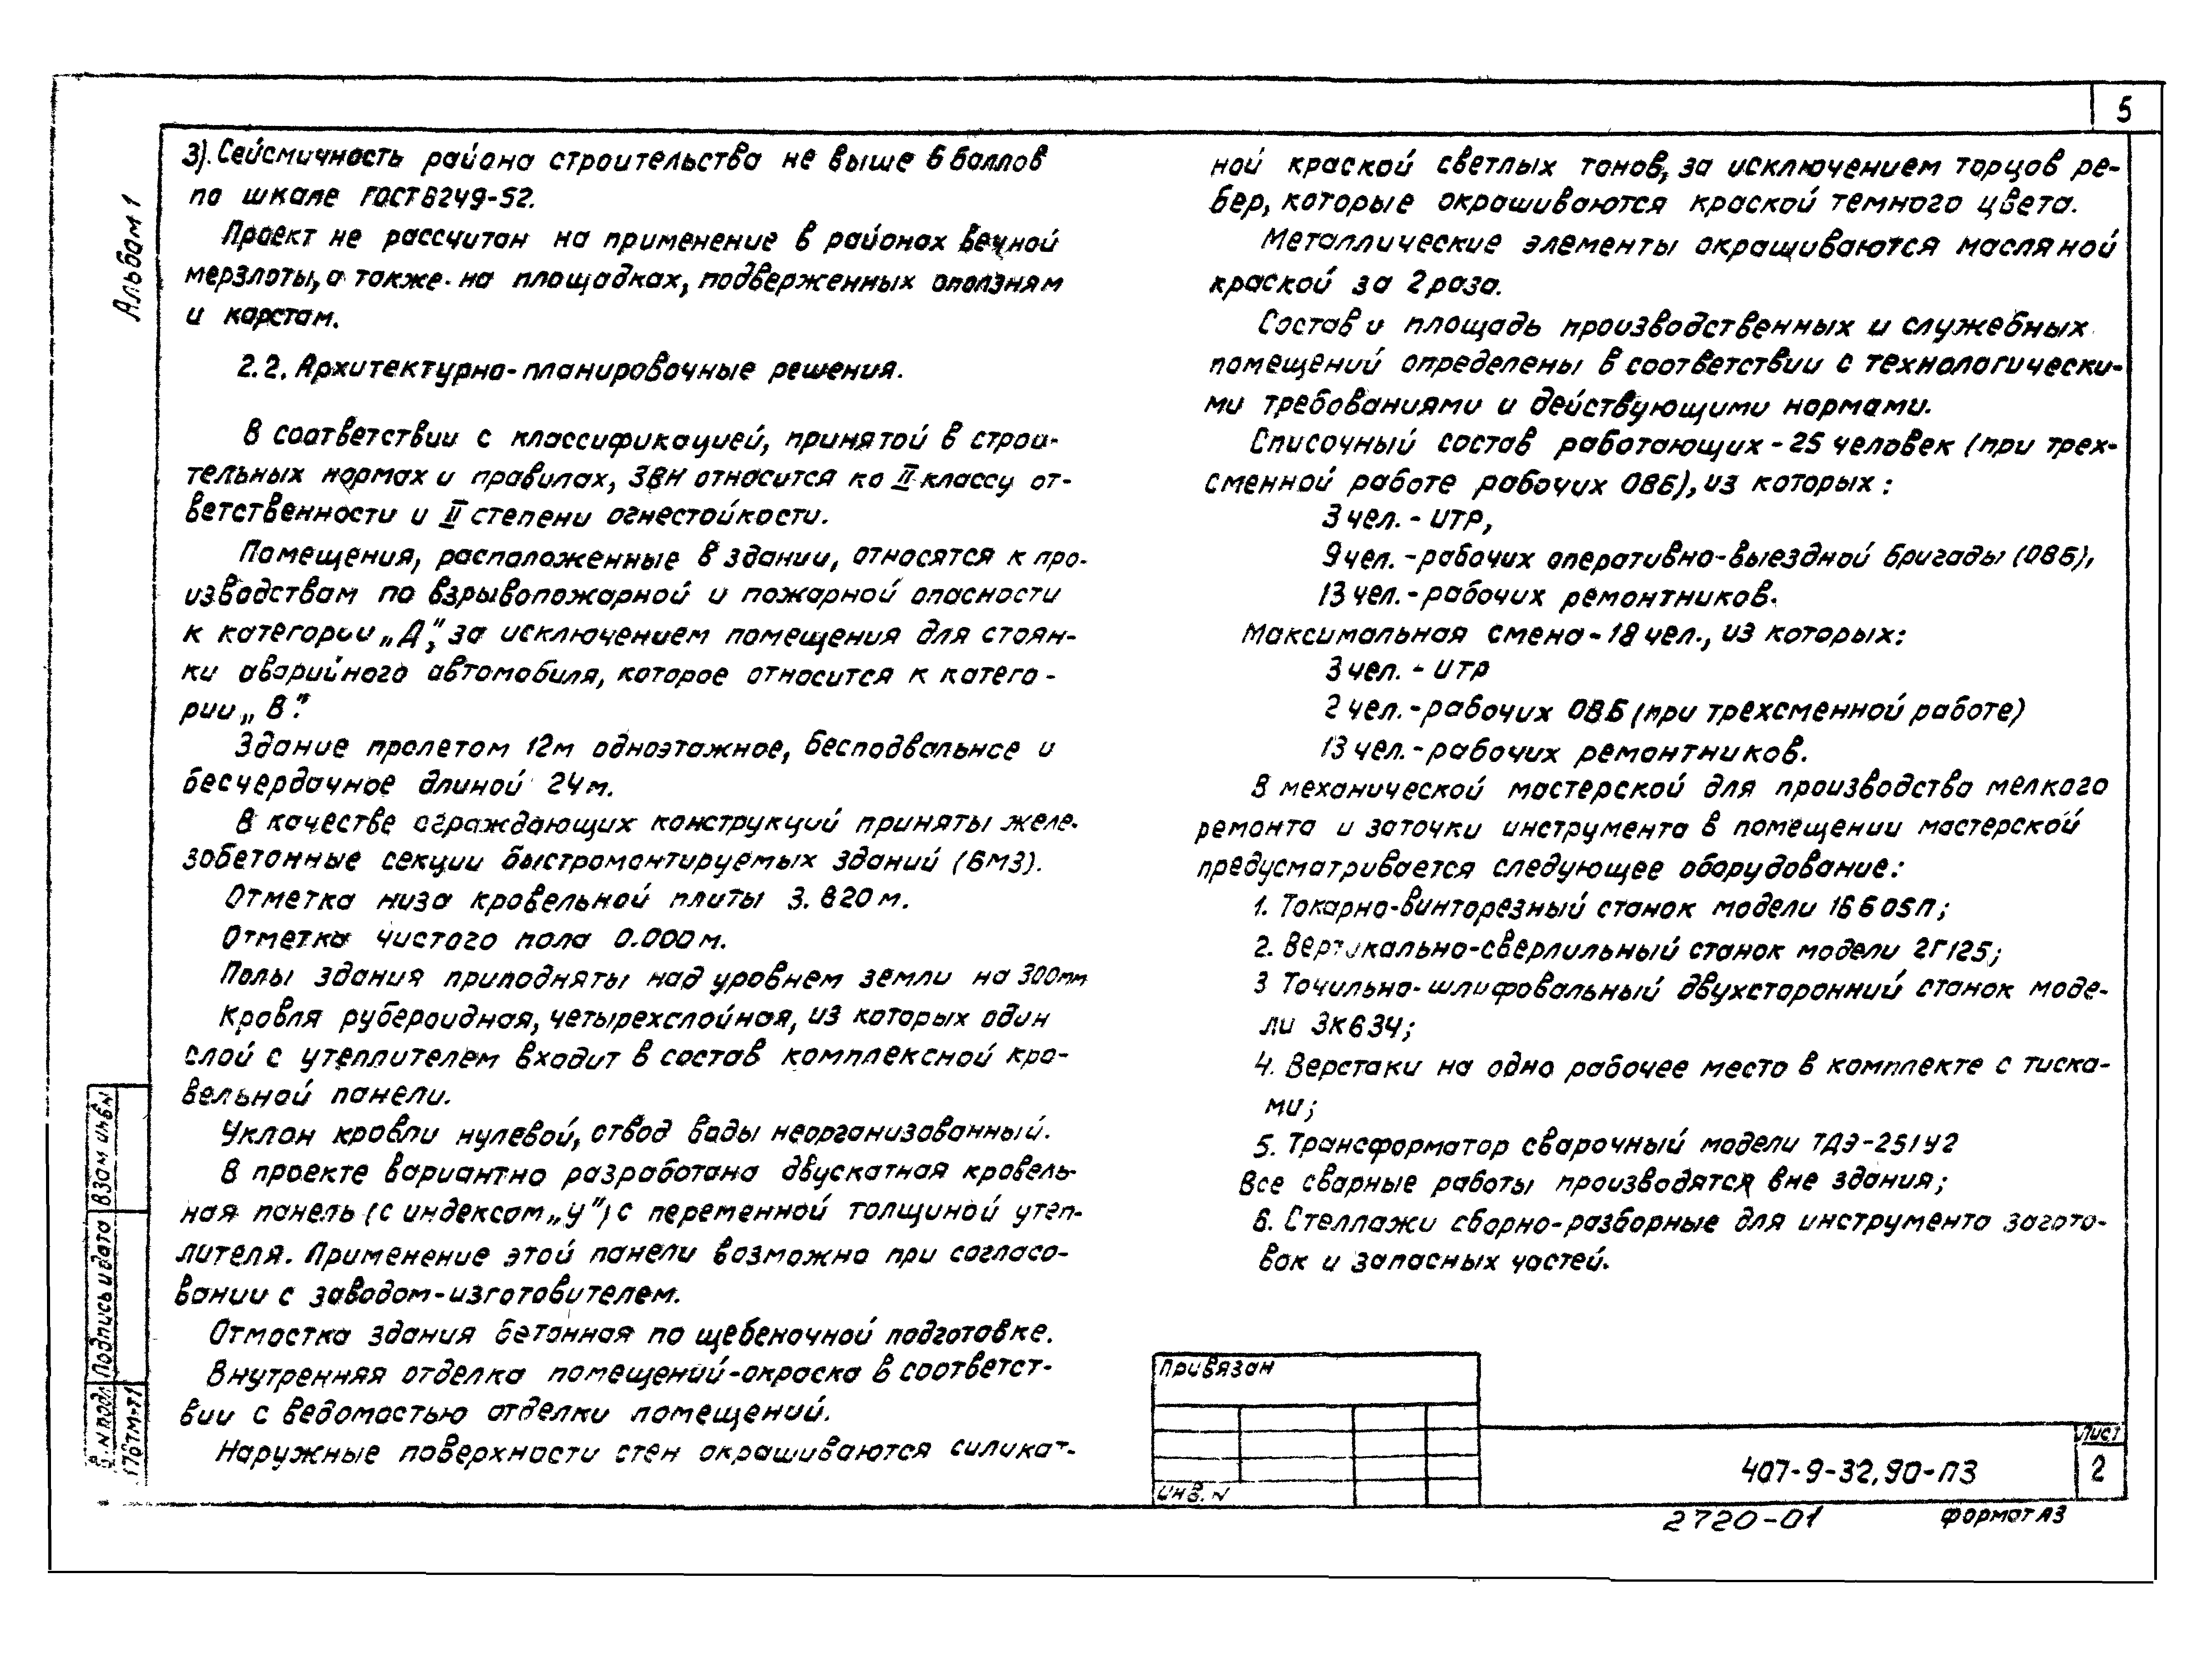 5
Альбом 1
3). Сейсмичность района строительства не выше 6 баллов
по шкале ГОСТ 6249-52.
Проект не рассчитан на применение в районах вечной
мерзлоты, а также на площадках, подверженных оползням
и карстам.
2.2. Архитектурно-планировочные решения.
В соответствии с классификацией, принятой в строи-
тельных нормах и правилах, ЗВН относится ко II классу от-
ветственности и II степени огнестойкости.
Помещения, расположенные в здании, относятся к про-
изводствам по взрывопожарной и пожарной опасности
к категории „Д", за исключением помещения для стоян-
ки аварийного автомобиля, которое относится к катего-
рии „В".
Здание пролетом 12м одноэтажное, бесподвальное и
бесчердачное длиной 24м.
В качестве ограждающих конструкций приняты желе-
зобетонные секции быстромонтируемых зданий (БМЗ).
Отметка низа кровельной плиты 3.820м.
Отметка чистого пола 0.000м.
Полы здания приподняты над уровнем земли на 300мм
Кровля рубероидная, четырехслойная, из которых один
слой с утеплителем входит в состав комплексной кро-
вельной панели.
Уклон кровли нулевой, отвод воды неорганизованный.
В проекте вариантно разработана двускатная кровель-
ная панель (с индексом „у") с переменной толщиной утеп-
лителя. Применение этой панели возможно при согласо-
вании с заводом-изготовителем.
Отмостка здания бетонная по щебеночной подготовке.
Внутренняя отделка помещений-окраска в соответст-
вии с ведомостью отделки помещений.
Наружные поверхности стен окрашиваются силикат-
ной краской светлых тонов, за исключением торцов ре-
бер, которые окрашиваются краской темного цвета.
Металлические элементы окращиваются масляной
краской за 2 раза.
Состав и площадь производственных и служебных
помещений определены в соответствии с технологически-
ми требованиями и действующими нормами.
Списочный состав работающих - 25 человек (при трех-
сменной работе рабочих ОВБ), из которых:
3 чел. - ИТР,
9 чел. - рабочих оперативно-выездной бригады (ОВБ),
13 чел. - рабочих ремонтников.
Максимальная смена - 18 чел., из которых:
3 чел. - ИТР
2 чел. - рабочих ОВБ (при трехсменной работе)
13 чел. - рабочих ремонтников.
В механической мастерской для производства мелкого
ремонта и заточки инструмента в помещении мастерской
предусматривается следующее оборудование:
1. Токарно-винторезный станок модели 16Б05П;
2. Вертикально-сверлильный станок модели 2Г125;
3 Точильно-шлифовальный двухсторонний станок моде-
ли 3К634;
4. Верстаки на одно рабочее место в комплекте с тиска-
ми;
5. Трансформатор сварочный модели ТДЭ-251У2
Все сварные работы производятся вне здания;
6. Стеллажи сборно-разборные для инструмента загото-
вок и запасных частей.
Привязан
Инв. N
407-9-32.90-ПЗ
Лист
2
2720-01
Формат А3
Взам инвN
Подпись и дата
N подл